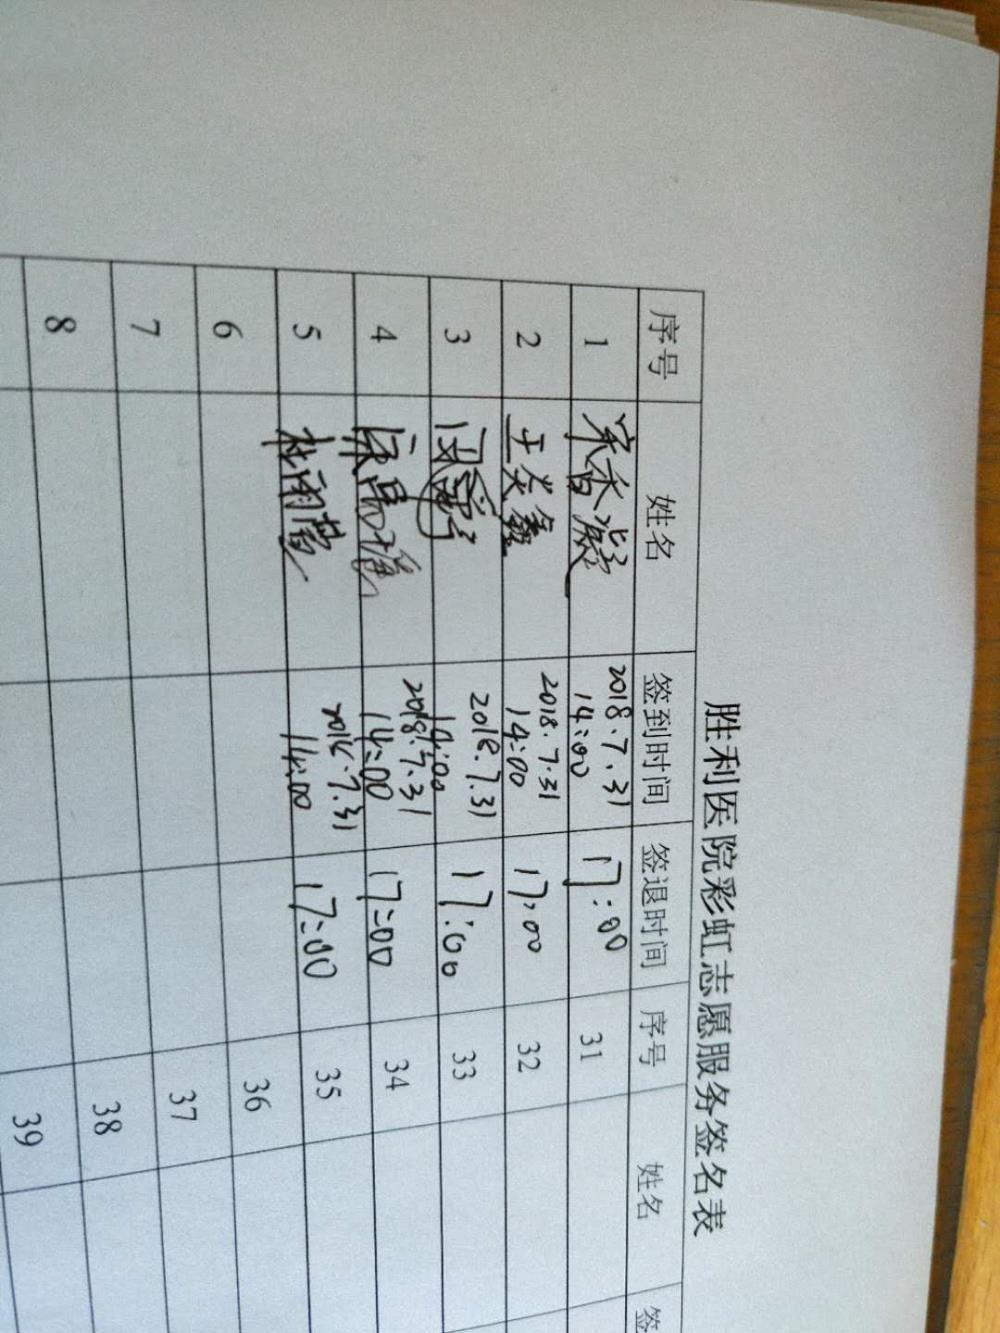 胜利医院彩虹志愿服务签名表
序号 姓名 签到时间 签退时间 序号 姓名 签
1 宋香凝 2018.7.31 14:00 17:00 31
2 王炎鑫 2018.7.31 14:00 17:00 32
3 2018.7.31 14:00 17:00 33
4 2018.7.31 14:00 17:00 34
5 杜雨莺 2018.7.31 14:00 17:00 35
6 36
7 37
8 38
39